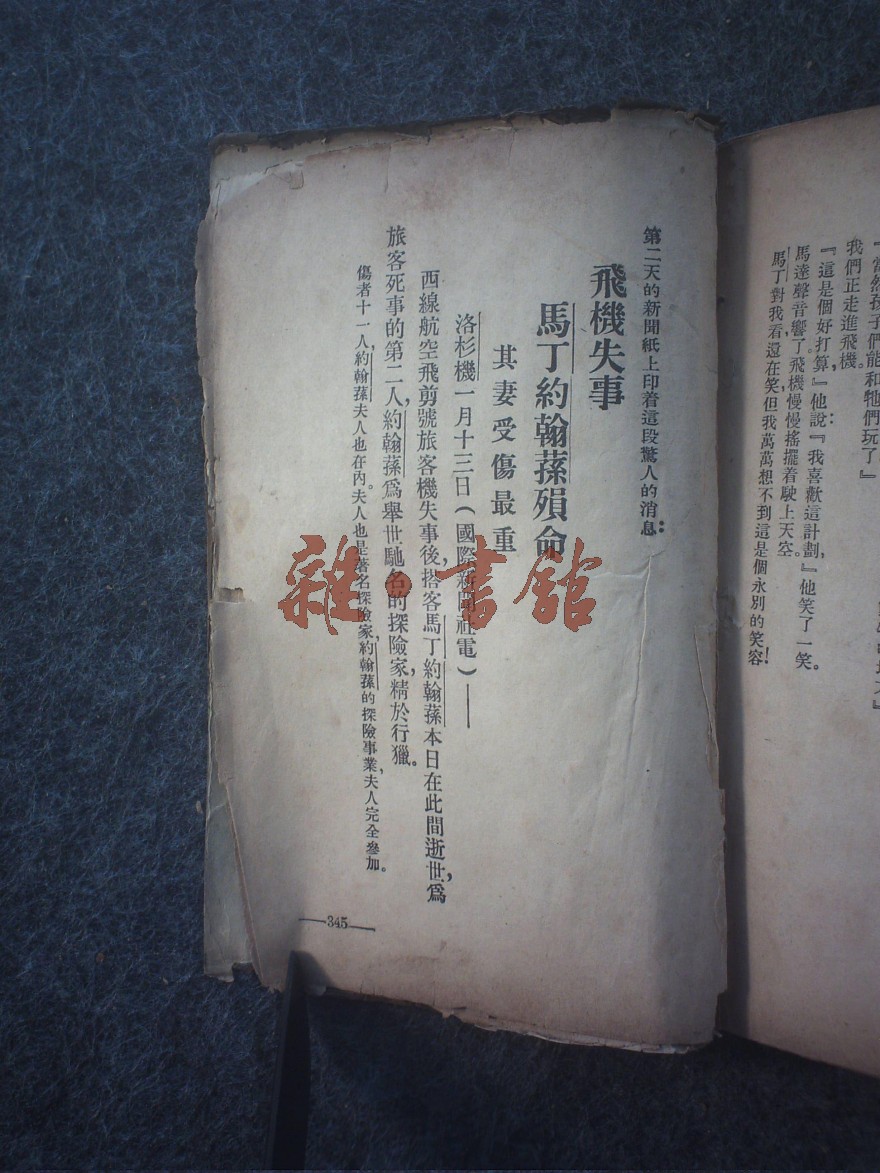 『當然孩子們能和牠們玩了』
我們正走進飛機。
『這是個好打算，』他說：『我喜歡這計劃，』他笑了一笑。
馬達聲音響了，飛機慢慢搖擺着駛上天空。
馬丁對我看還在笑，但我萬萬想不到這是個永別的笑容！
第二天的新聞紙上印着這段驚人的消息：
飛機失事
馬丁約翰蓀殞命
其妻受傷最重
洛杉機一月十三日（國際新聞社電）——
西線航空飛剪號旅客機失事後，搭客馬丁約翰蓀本日在此間逝世，爲
旅客死事的第二人，約翰蓀爲舉世馳名的探險家，精於行獵。
傷者十一人，約翰蓀夫人也在內。夫人也是著名探險家，約翰蓀的探險事業，夫人完全參加。
—345—
雜·書館